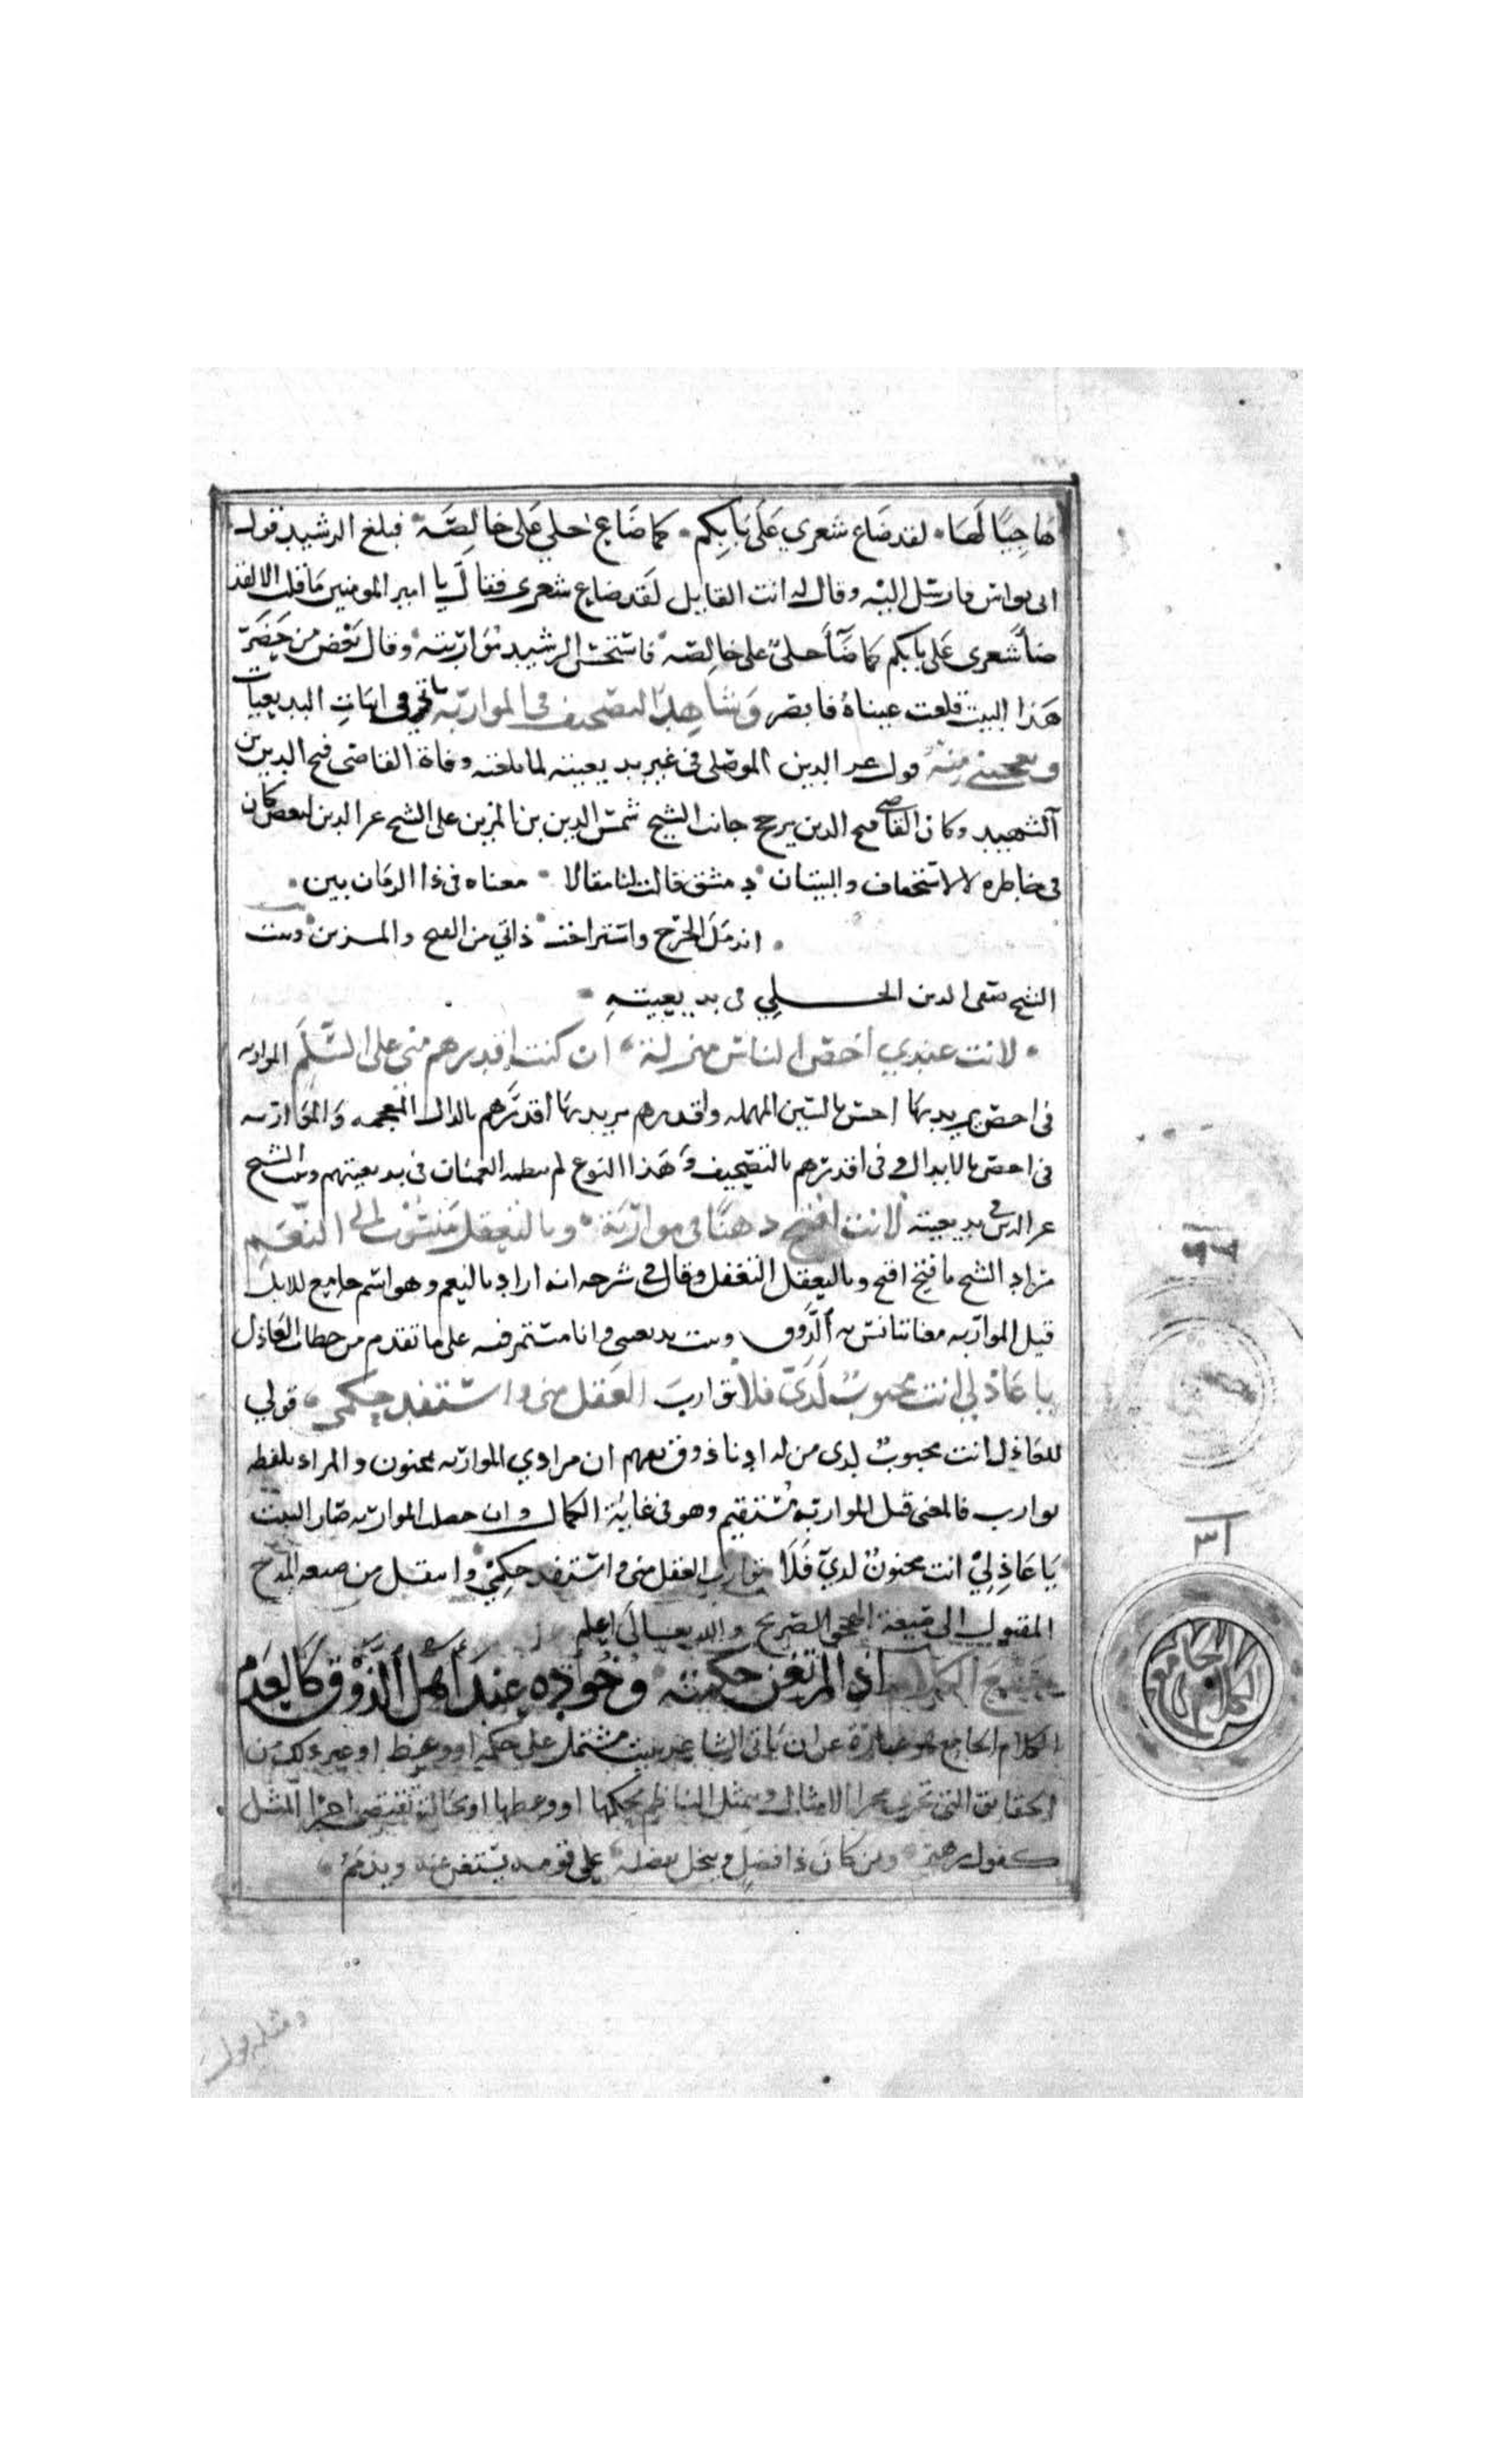 هاجيًا لها لقد ضاع شعري على بابكم كما ضاع حلي على خالصه فبلغ الرشيد قول
ابى نواس فارسل اليه وقال له انت القايل لقد ضاع شعرى فقال يا امير المومنين ما قلت الا لقد
ضأ شعرى على بابكم كما ضآ حلىٌ على خالصه فاستحسن الرشيد مواربته وقال بعض من حضر
هذا البيت قلعت عيناه فابصر وشاهد التصحيف فى المواربه ياتي فى ابيات البديعيات
ويعجبنى منه قول عز الدين الموصلى فى غير بديعيته لما بلغته وفاة القاضى فتح الدين بن
الشهيد وكان القاضى فتح الدين يرجح جانب الشيخ شمس الدين بن المزين على الشيخ عز الدين لبعض كان
فى خاطره لا لاستخفاف والبيتان دمشق قالت لنا مقالا معناه فى ذا الزمان بين
اندمل الجرح واستراحت ذاتي من الفتح والمزين وبيت
الشيخ صفى الدين الحلي فى بديعيته
لانت عندي اخص الناس منزلة ان كنت اقدرهم منى على السلم المواربه
فى اخص يريد بها اخس بالسين المهمله واقدرهم يريد بها اقذرهم بالذال المعجمه والمواربه
فى اخص بالابدال وفى اقدرهم بالتصحيف وهذا النوع لم ينظمه العميان فى بديعيتهم وبيت الشيخ
عز الدين فى بديعيته لانت افتح ذهنًا فى مواربة وبالتعقل منسوب الى النعم
مراد الشيخ بافتح اقبح وبالتعقل التغفل وقال فى شرحه انه اراد بالنعم وهو اسم جامع للابل
قبل المواربه معنا تانس به الذوق وبيت بديعيتى وانا مستمر فيه على ما تقدم من خطاب العاذل
يا عاذلي انت محبوبٌ لدىّ فلا توارب العقل منى واستفد حكمى قولي
للعاذل انت محبوبٌ لدى من له ادنا ذوق يفهم ان مرادي المواربه بمجنون والمراد بلفظه
توارب فالمعنى قبل المواربة مستقيم وهو فى غاية الكمال وان حصلت المواربه صار البيت
يا عاذِلِيْ انت مجنونٌ لديّ فلَا توارب العقل منى واستفد حكمِيْ وانتقل من صيغه المدح
المقبول الى صيغة الهجو الصريح والله تعالى اعلم
جمع الكلام اذا لم تغن حكمته وجوده عند اهل الذوق كالعدم
الكلام الجامع هو عبارة عن ان ياتى الشاعر ببيت مشتمل على حكمه او وعظ او غير ذلك من
الحقايق التى تجرى مجرا الامثال ويتمثل الناظم بحكمها او وعظها او بحالة تقتضى اجرا المثل
كقول زهير ومن كان ذا فضل ويبخل بفضله على قومه يستغن عنه ويذمم
ومثله قول
الكلام الجامع